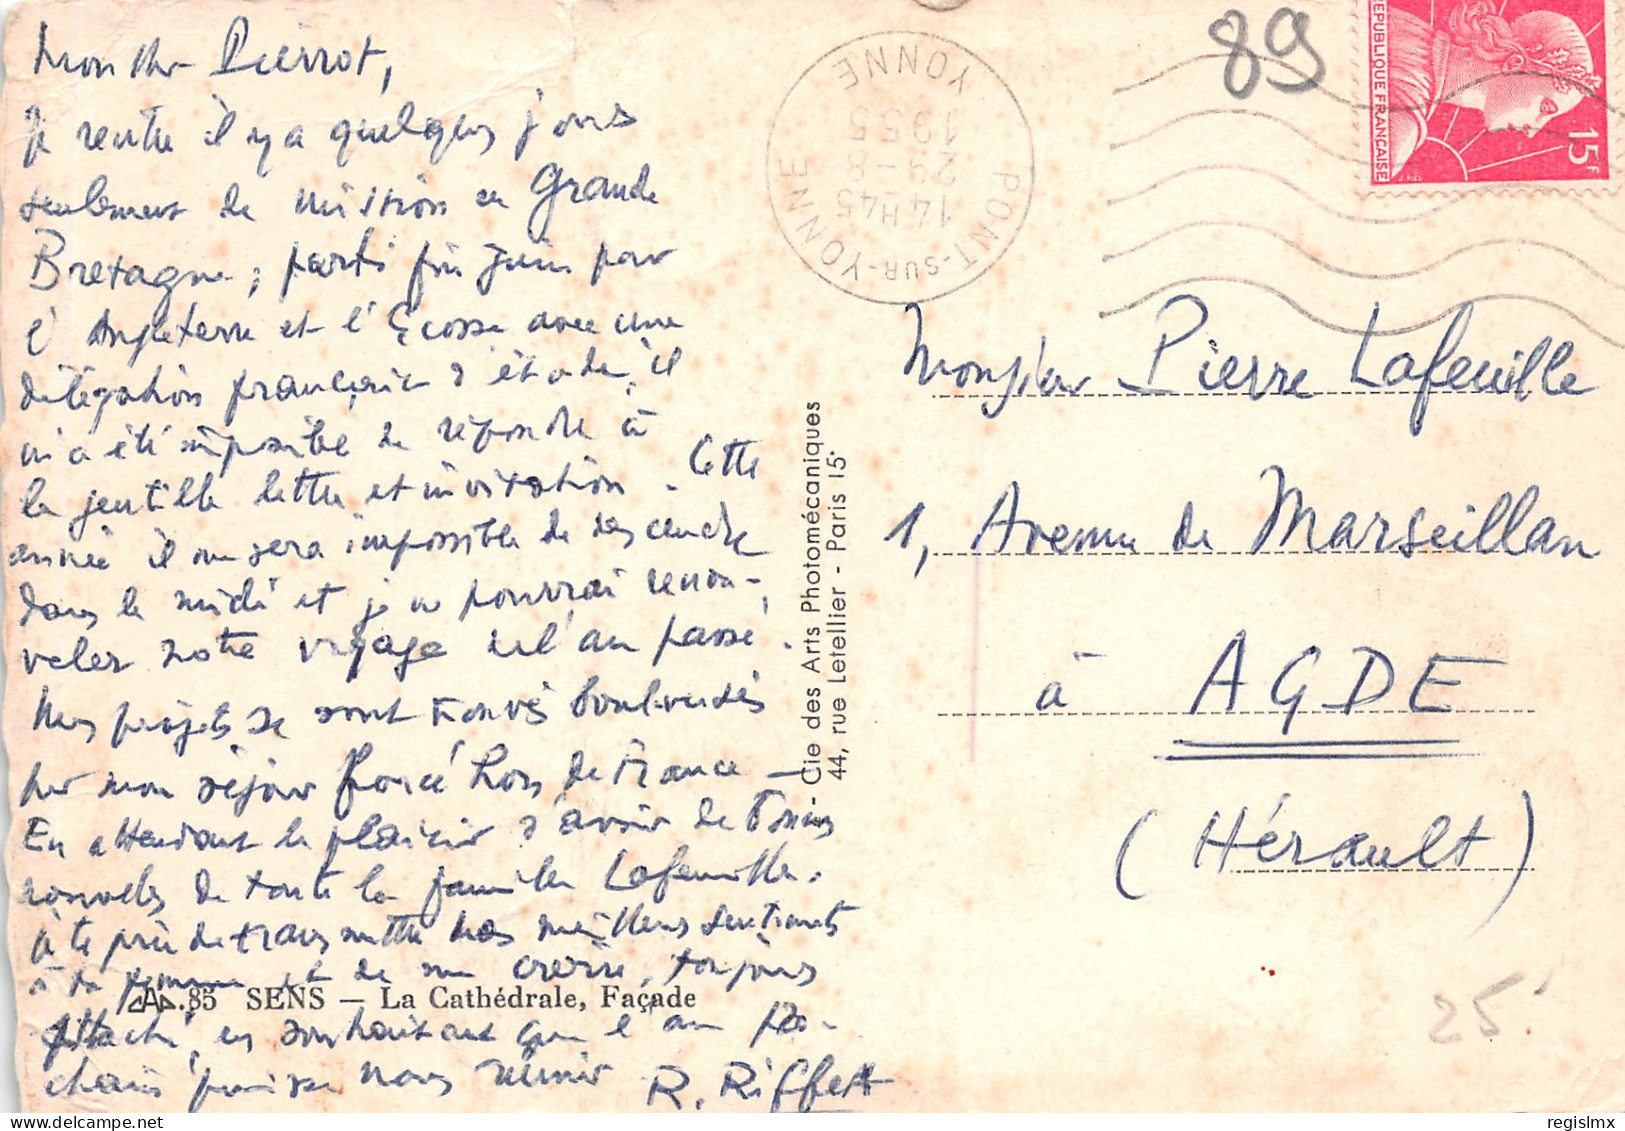 Mon cher Pierrot,
Je rentre il y a quelques jours
seulement de mission en Grande
Bretagne ; parti fin Juin pour
l'Angleterre et l'Ecosse avec une
délégation française d'étude, il
m'a été impossible de répondre à
la gentille lettre et invitation. Cette
année il me sera impossible de descendre
dans le midi et je ne pourrai renou-
veler notre voyage de l'an passé.
Mes projets se sont trouvés bouleversés
par mon séjour forcé hors de France –
En attendant le plaisir d'avoir de bonnes
nouvelles de toute la famille Lafeuille.
je te prie de transmettre mes meilleurs sentiments
à ta femme et de me croire, toujours
attaché, en souhaitant que l'an pro-
chain puisse nous réunir R. Riffett
.85 SENS – La Cathédrale, Façade
Cie des Arts Photomécaniques
44, rue Letellier - Paris 15e
PONT-SUR-YONNE
14H45
29-8
1955
YONNE
89
REPUBLIQUE FRANÇAISE
15F
Monsieur Pierre Lafeuille
1, Avenue de Marseillan
à AGDE
(Hérault)
25
regislmx